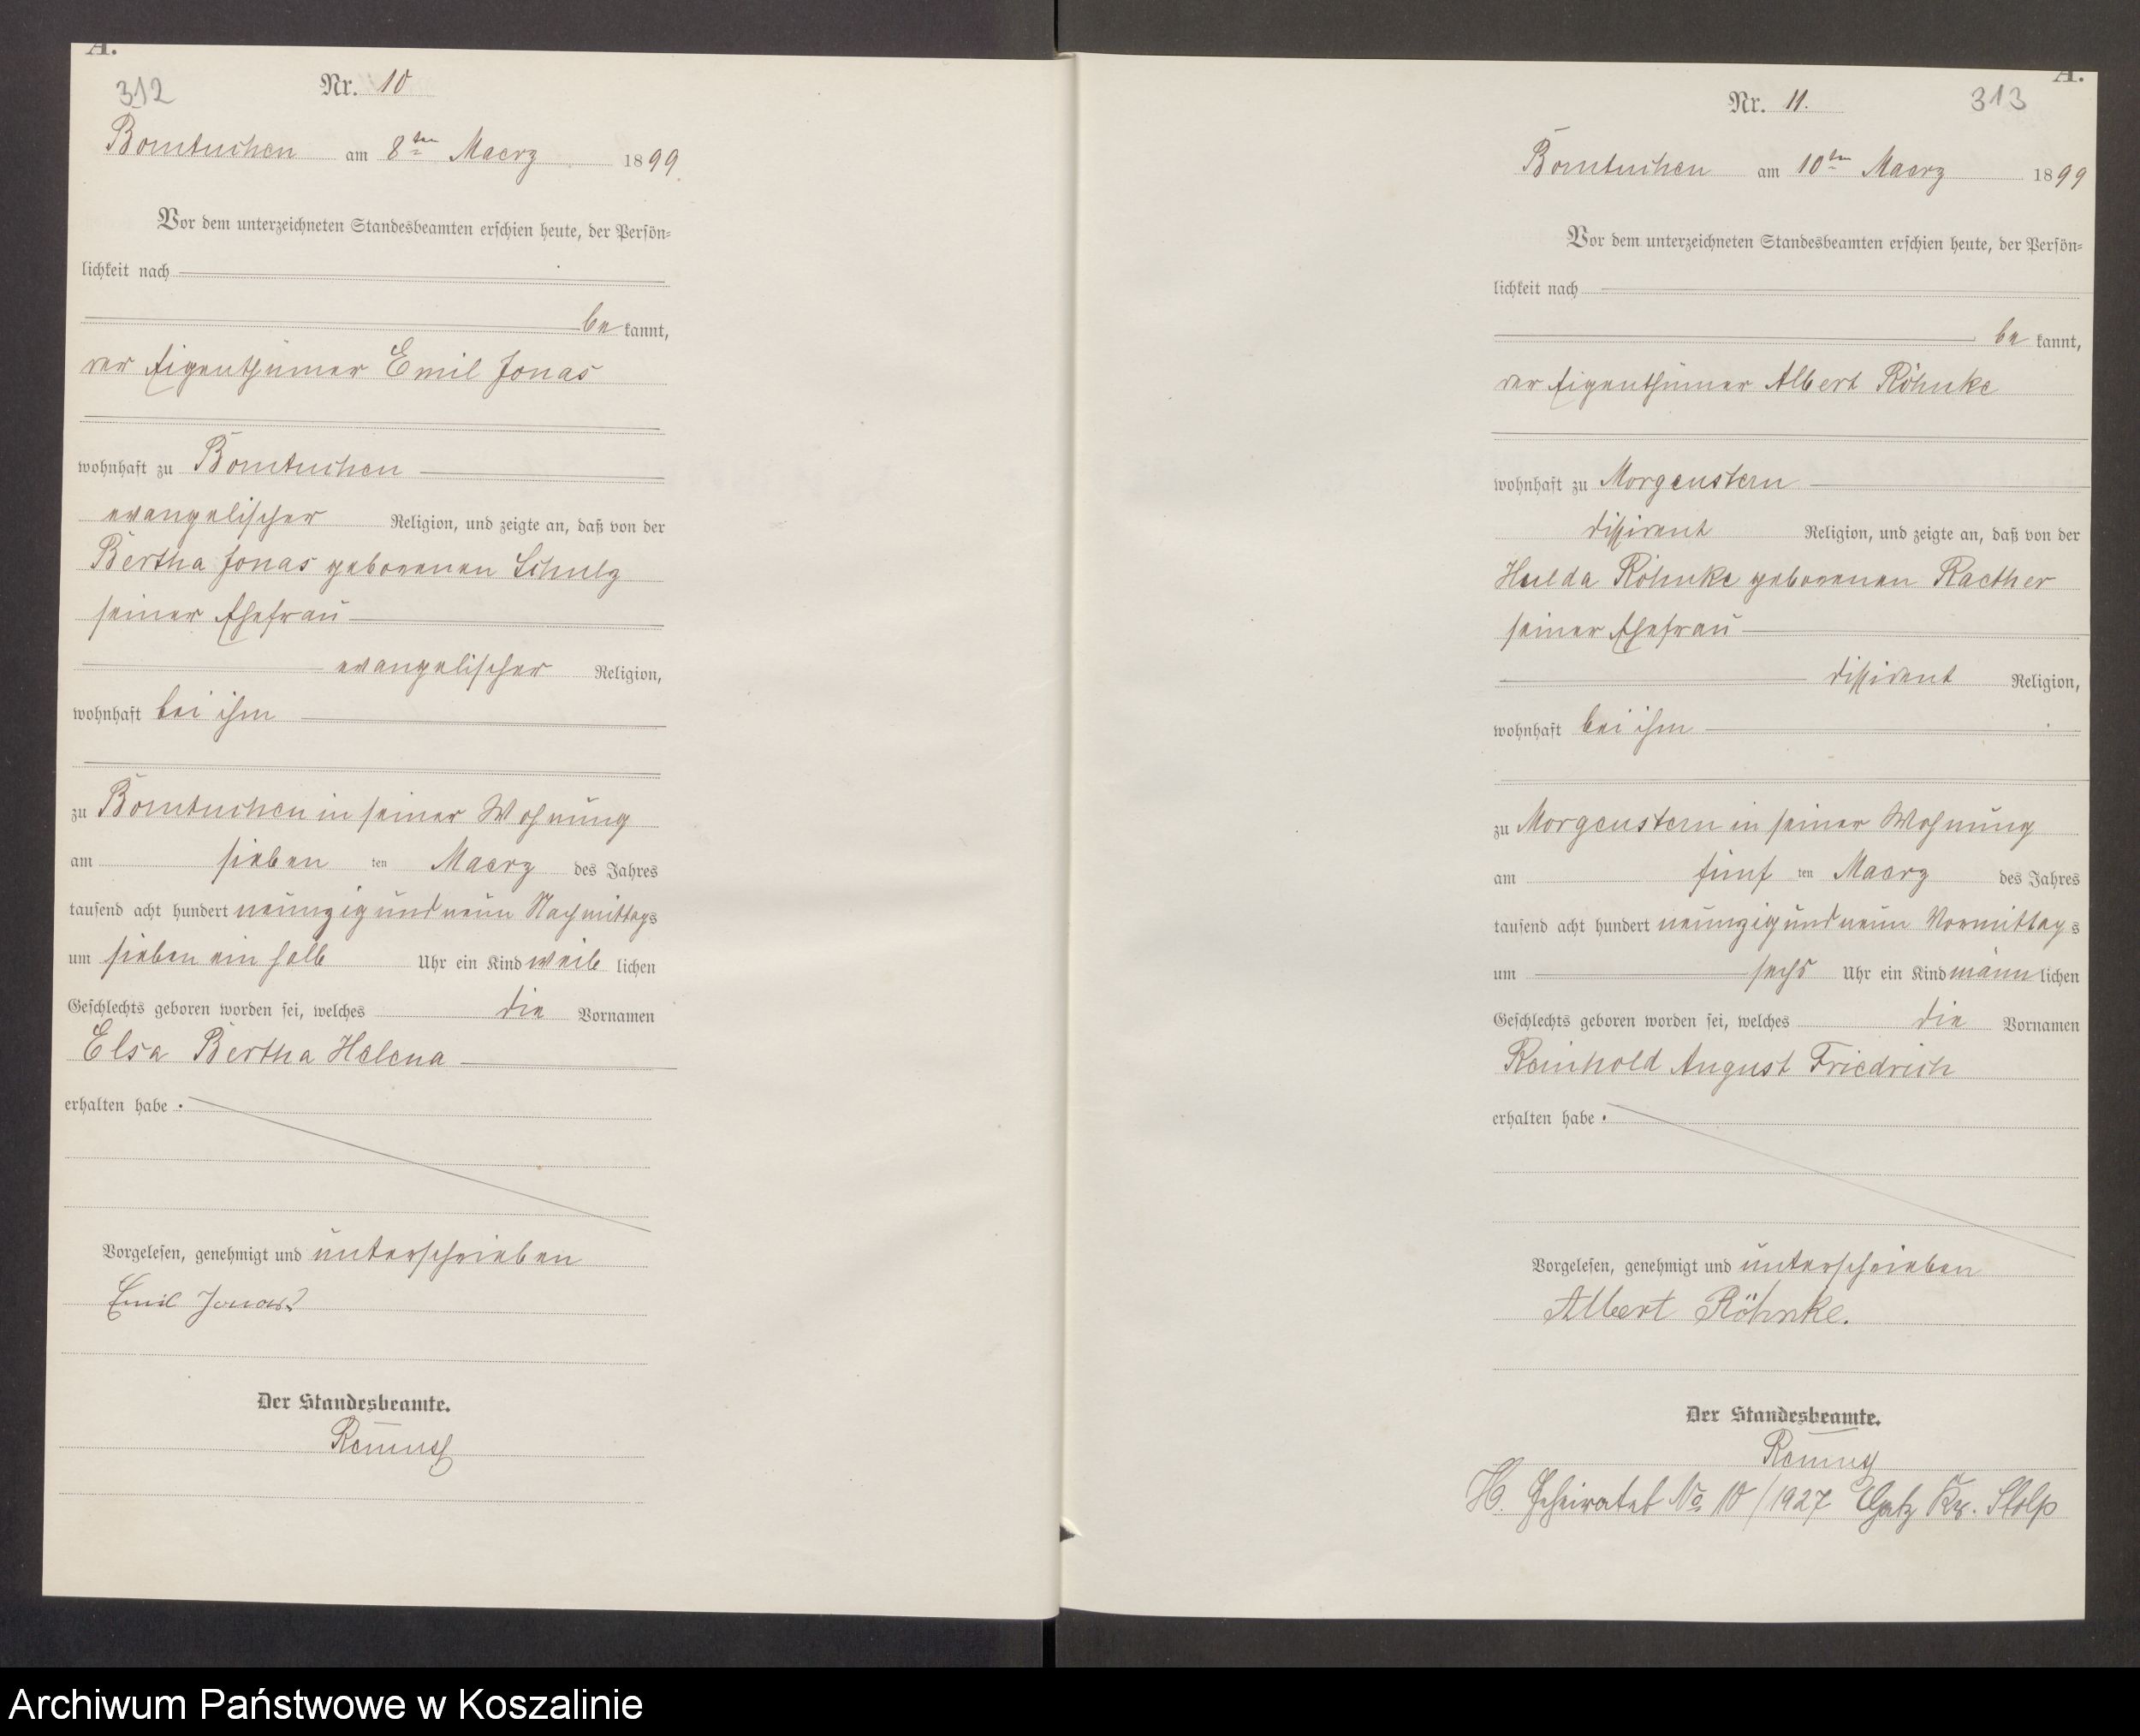 A.
312
Nr. 10
Bomtuchen am 8ten Maerz 1899.
Vor dem unterzeichneten Standesbeamten erschien heute, der Persön-
lichkeit nach
bekannt,
der Eigenthümer Emil Jonas
wohnhaft zu Bomtuchen
evangelischer Religion, und zeigte an, daß von der
Bertha Jonas geborenen Schulz
seiner Ehefrau
evangelischer Religion,
wohnhaft bei ihm
zu Bomtuchen in seiner Wohnung
am sieben ten Maerz des Jahres
tausend acht hundert neunzig und neun Nachmittags
um sieben ein halb Uhr ein Kind weiblichen
Geschlechts geboren worden sei, welches die Vornamen
Elsa Bertha Helena
erhalten habe.
Vorgelesen, genehmigt und unterschrieben
Emil Jonas
Der Standesbeamte.
A.
313
Nr. 11.
Bomtuchen am 10ten Maerz 1899
Vor dem unterzeichneten Standesbeamten erschien heute, der Persön-
lichkeit nach
bekannt,
der Eigenthümer Albert Röhnke
wohnhaft zu Morgenstern
dissident Religion, und zeigte an, daß von der
Hulda Röhnke geborenen Raether
seiner Ehefrau
dissident Religion,
wohnhaft bei ihm
zu Morgenstern in seiner Wohnung
am fünf ten Maerz des Jahres
tausend acht hundert neunzig und neun Vormittags
um sechs Uhr ein Kind männlichen
Geschlechts geboren worden sei, welches die Vornamen
Reinhold August Friedrich
erhalten habe.
Vorgelesen, genehmigt und unterschrieben
Albert Röhnke.
Der Standesbeamte.
H. Geheiratet No 10/1927 Kr. Stolp
Archiwum Państwowe w Koszalinie